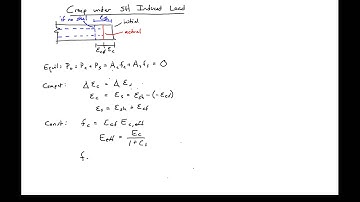 Creep under SH Induced Load
if no steel
initial
actual
εcf εc
Equil: Pn = Pc + Ps = Ac fc + As fs = 0
Compat: Δ εc = Δ εs
εc = εs = εsh - (-εcf)
εs = εsh + εcf
Const: fc = εcf Ec,eff
Eeff = Ec / 1 + Cc
f.